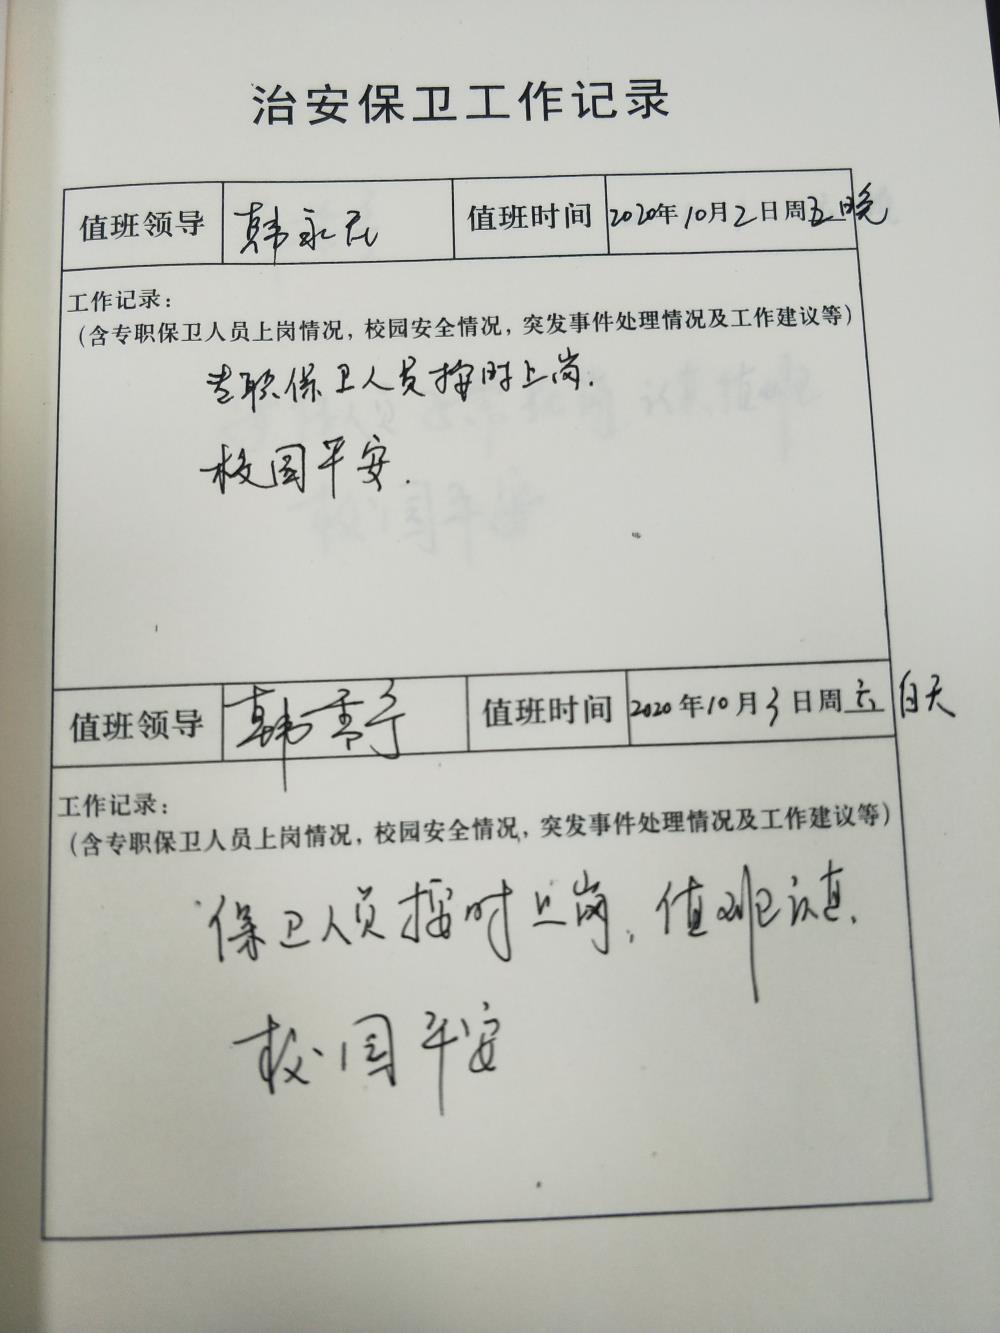 治安保卫工作记录
值班领导 韩永 值班时间 2020年10月2日周五晚
工作记录：
（含专职保卫人员上岗情况，校园安全情况，突发事件处理情况及工作建议等）
专职保卫人员按时上岗.
校园平安.
值班领导 韩 值班时间 2020年10月3日周六 白天
工作记录：
（含专职保卫人员上岗情况，校园安全情况，突发事件处理情况及工作建议等）
保卫人员按时上岗，值班认真，
校园平安